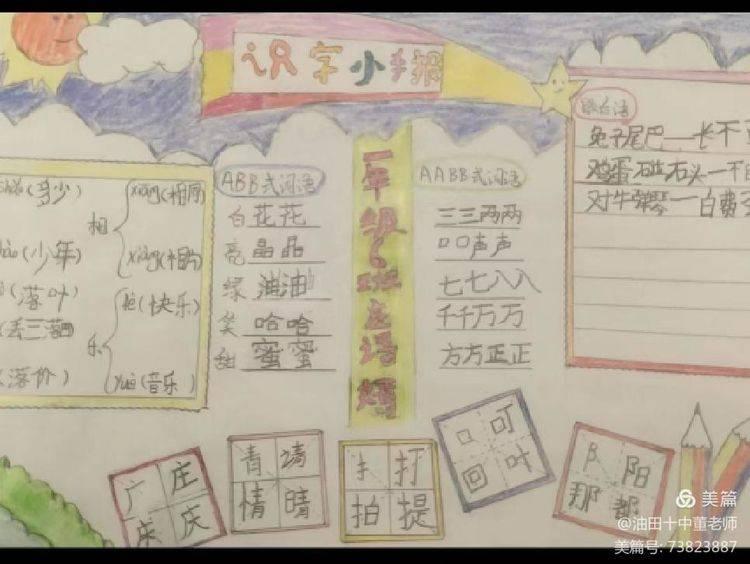 识字小手报
(多少)
(少年)
(落叶)
(丢三落四)
(落价)
相
xiāng(相同)
xiàng(相片)
乐
lè(快乐)
yuè(音乐)
ABB式词语
白花花
亮晶晶
绿油油
笑哈哈
甜蜜蜜
一年级6班
AABB式词语
三三两两
口口声声
七七八八
千千万万
方方正正
兔子尾巴一长不
鸡蛋碰石头一不
对牛弹琴一白费
广 庄
床 庆
青 请
情 晴
扌 打
拍 提
口 叮
回 叶
阝 阳
那 都
美篇
@油田十中董老师
美篇号: 73823887